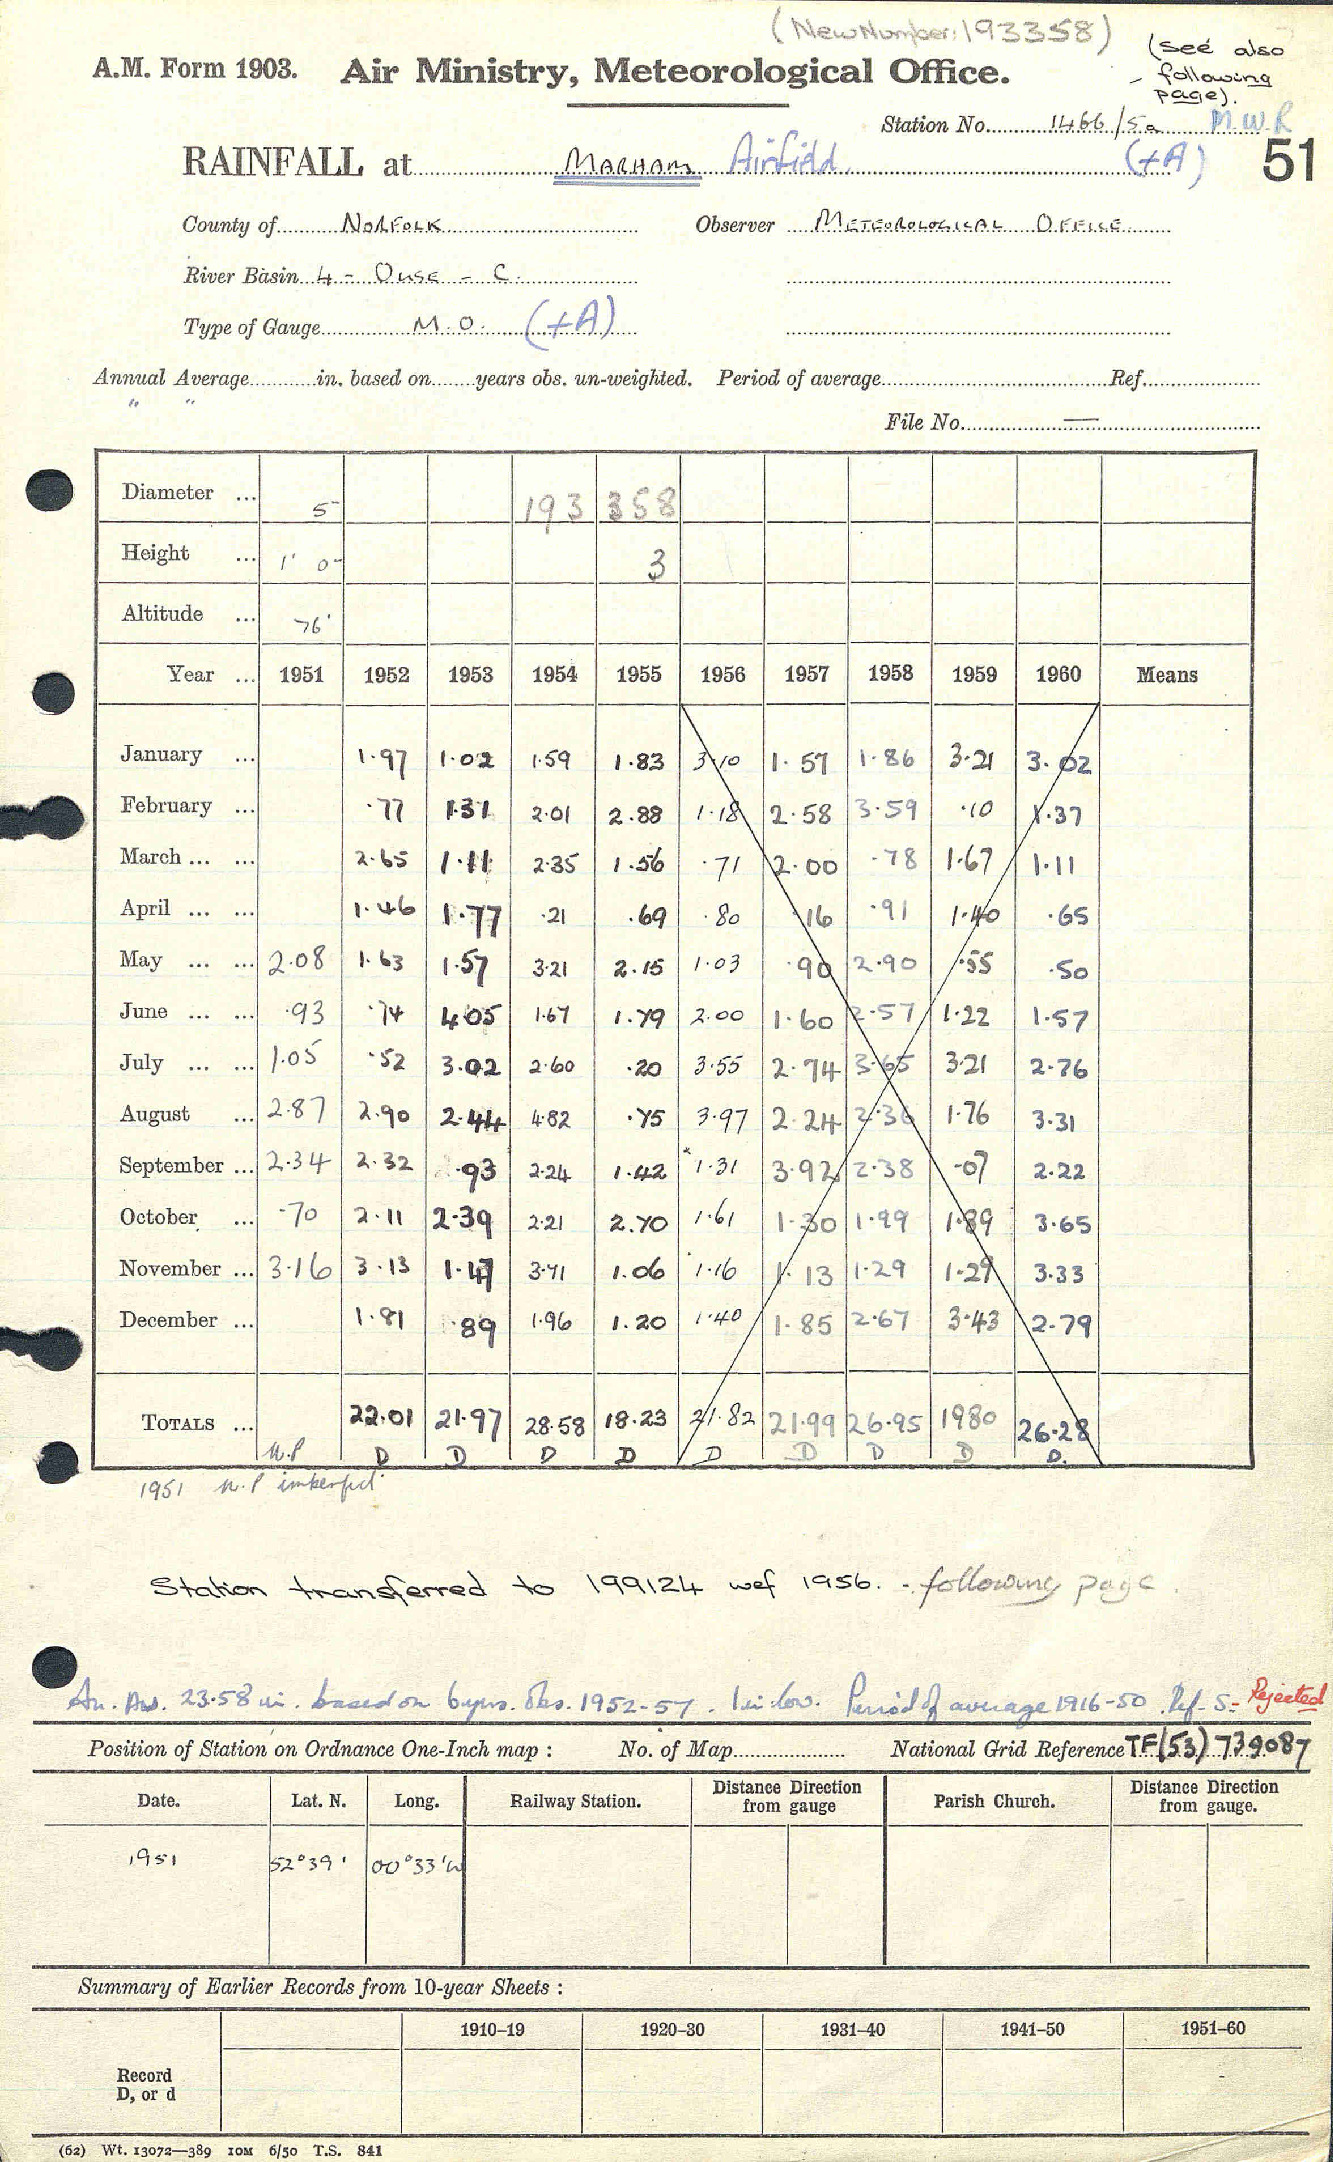 (New Number: 193358)
(see also
following
page).
A.M. Form 1903. Air Ministry, Meteorological Office.
Station No. 1466/5a M.W.R
RAINFALL at MARHAM Airfield. (+A) 51
County of NORFOLK Observer METEOROLOGICAL OFFICE
River Basin 4 - OUSE - C.
Type of Gauge M.O. (+A)
Annual Average in. based on years obs. un-weighted. Period of average Ref.
" "
File No. —
Diameter ... 5 193 358
Height ... 1' 0" 3
Altitude ... 76'
Year ... 1951 1952 1953 1954 1955 1956 1957 1958 1959 1960 Means
January ... 1.97 1.02 1.59 1.83 3.10 1.57 1.86 3.21 3.02
February ... .77 1.31 2.01 2.88 1.18 2.58 3.59 .10 1.37
March ... ... 2.65 1.11 2.35 1.56 .71 2.00 .78 1.67 1.11
April ... ... 1.46 1.77 .21 .69 .80 .16 .91 1.40 .65
May ... ... 2.08 1.63 1.57 3.21 2.15 1.03 .90 2.90 .55 .50
June ... ... .93 .74 4.05 1.67 1.79 2.00 1.60 2.57 1.22 1.57
July ... ... 1.05 .52 3.02 2.60 .20 3.55 2.74 3.65 3.21 2.76
August ... 2.87 2.90 2.44 4.82 .75 3.97 2.24 2.36 1.76 3.31
September ... 2.34 2.32 .93 2.24 1.42 * 1.31 3.92 2.38 .07 2.22
October ... .70 2.11 2.39 2.21 2.70 1.61 1.30 1.99 1.89 3.65
November ... 3.16 3.13 1.47 3.71 1.06 1.16 1.13 1.29 1.29 3.33
December ... 1.81 .89 1.96 1.20 1.40 1.85 2.67 3.43 2.79
TOTALS ... 22.01 21.97 28.58 18.23 21.82 21.99 26.95 1980 26.28
N.P D D D D D D D D D.
1951 N.P imperfect
Station transferred to 199124 wef 1956. - following page.
An. Av. 23.58 in. based on 6 yrs. Obs. 1952-57. 1 in low. Period of average 1916-50. Ref. S= Rejected
Position of Station on Ordnance One-Inch map : No. of Map National Grid Reference TF(53) 739087
Date. Lat. N. Long. Railway Station. Distance from gauge Direction Parish Church. Distance from gauge. Direction
1951 52°39' 00°33'W
Summary of Earlier Records from 10-year Sheets :
1910–19 1920–30 1931–40 1941–50 1951–60
Record
D, or d
(62) Wt. 13072—389 10M 6/50 T.S. 841